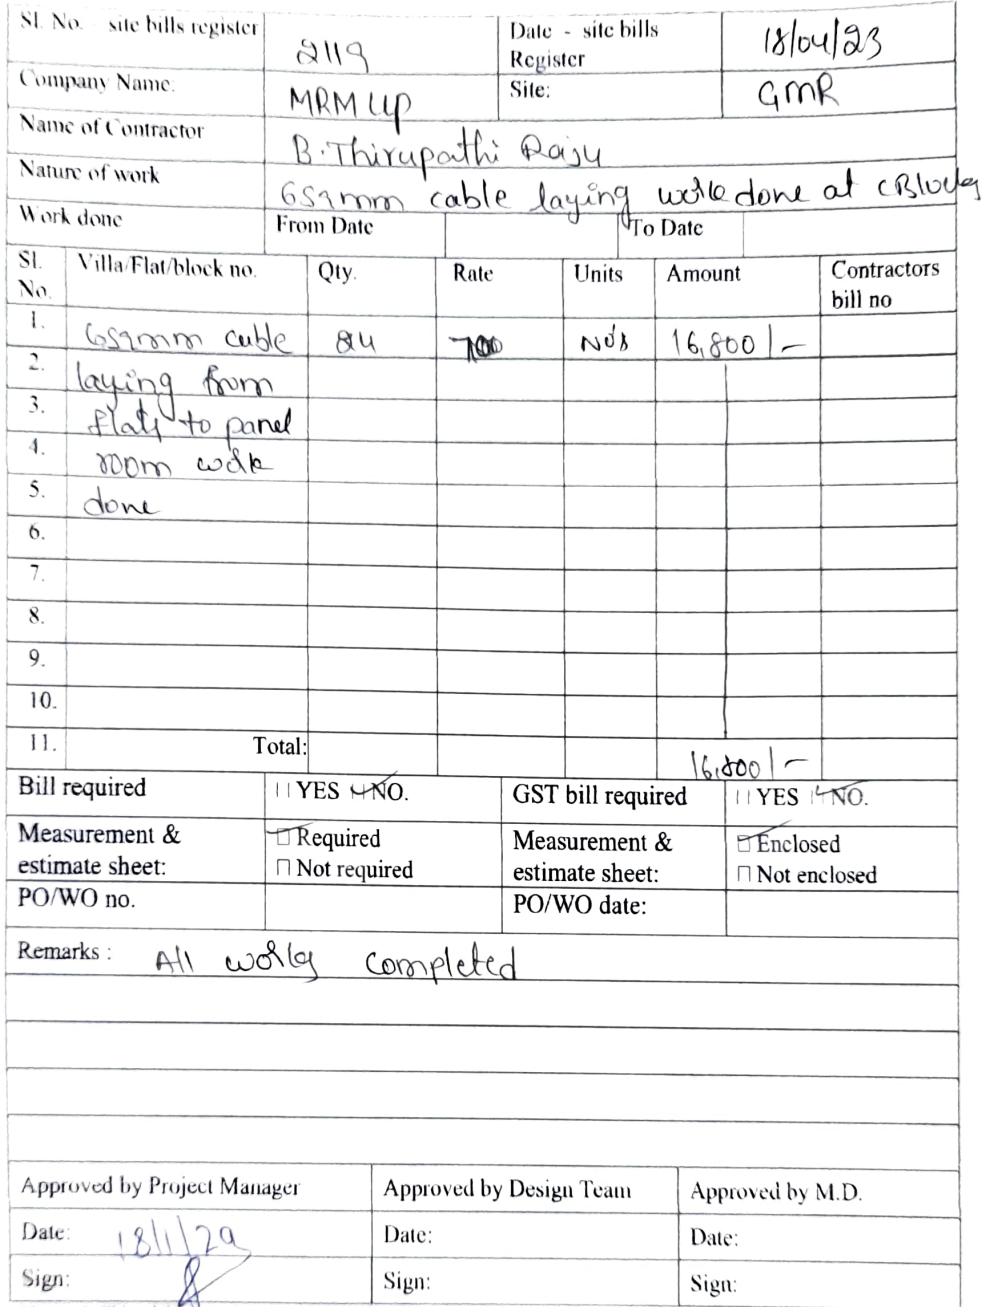 Sl. No. - site bills register 2119 Date - site bills Register 18/04/23
Company Name: MRM LLP Site: GMR
Name of Contractor B. Thirupathi Raju
Nature of work 6sqmm cable laying work done at C Blocks
Work done From Date To Date
Sl. No. Villa/Flat/block no. Qty. Rate Units Amount Contractors bill no
1. 6sqmm cable 24 700 No's 16,800/-
2. laying from
3. flats to panel
4. room work
5. done
6.
7.
8.
9.
10.
11. Total: 16,800/-
Bill required YES NO. GST bill required YES NO.
Measurement & estimate sheet: Required Not required Measurement & estimate sheet: Enclosed Not enclosed
PO/WO no. PO/WO date:
Remarks : All works completed
Approved by Project Manager Approved by Design Team Approved by M.D.
Date: Date: Date:
Sign: Sign: Sign: